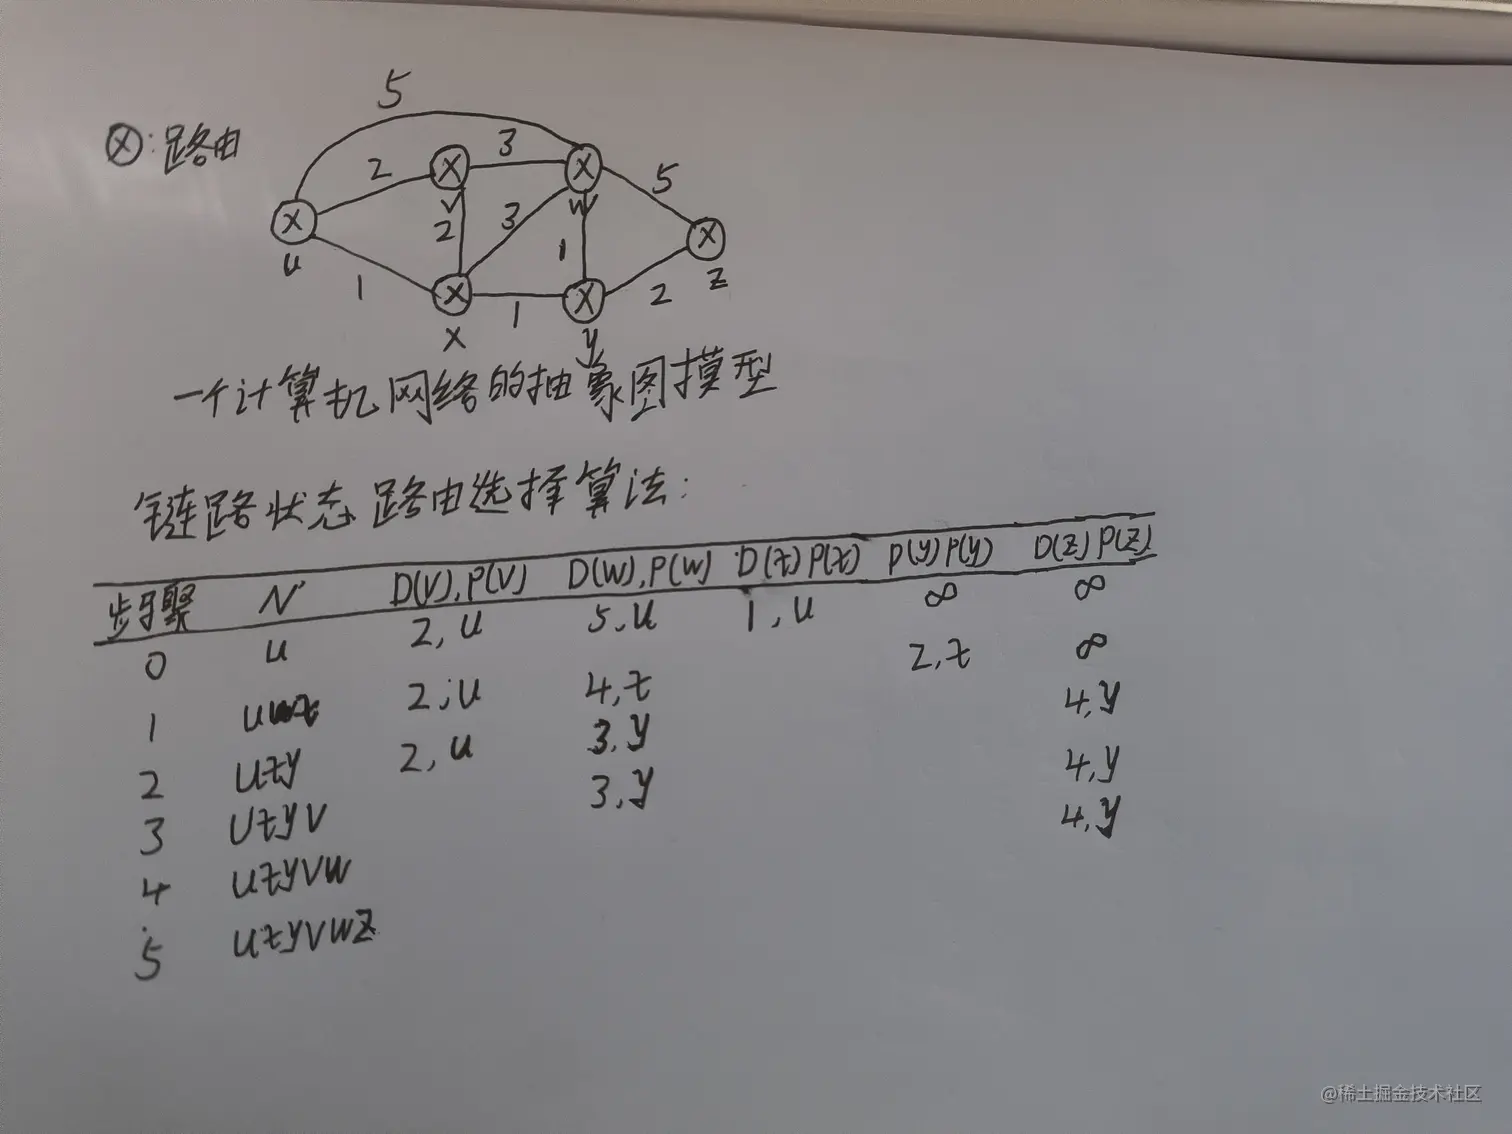 5
⊗:路由
2
3
5
u
v
2
3
w
1
z
1
1
2
x
y
一个计算机网络的抽象图模型
链路状态路由选择算法:
步骤 N' D(v),P(v) D(w),P(w) D(x)P(x) D(y)P(y) D(z)P(z)
0 u 2,u 5,u 1,u ∞ ∞
1 ux 2,u 4,x 2,x ∞
2 uxy 2,u 3,y 4,y
3 uxyv 3,y 4,y
4 uxyvw 4,y
5 uxyvwz
@稀土掘金技术社区